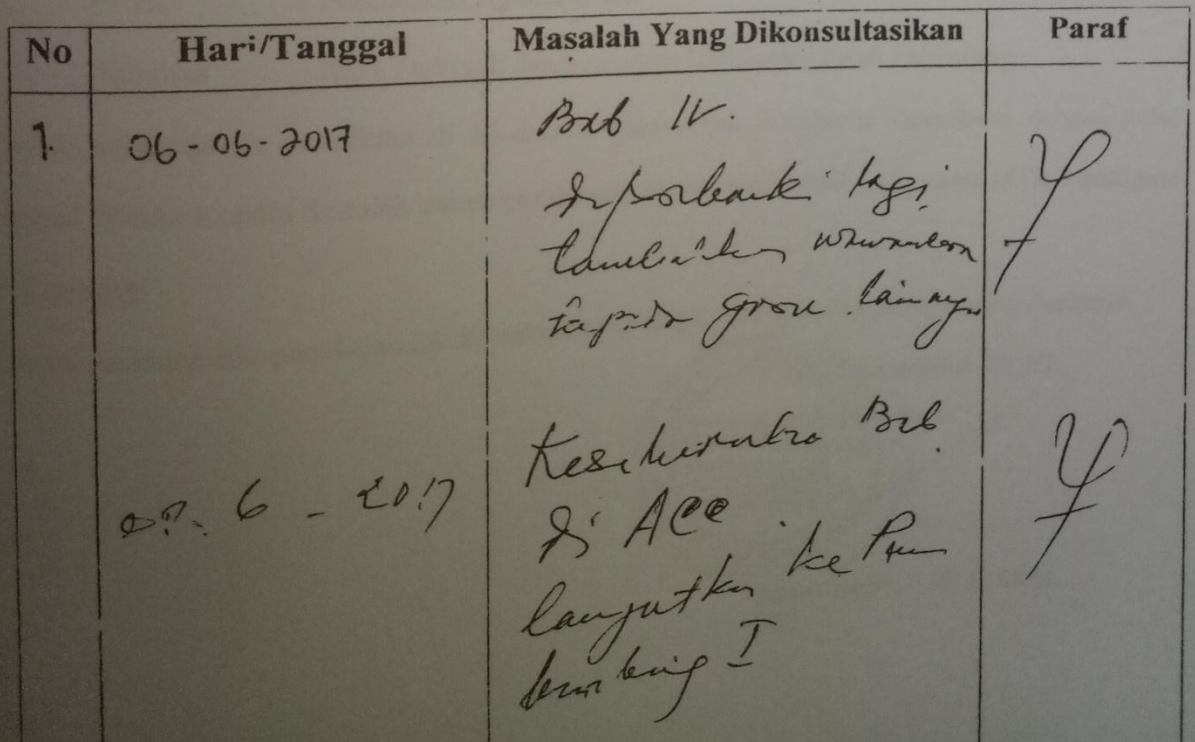 No Hari/Tanggal Masalah Yang Dikonsultasikan Paraf
1. 06-06-2017 Bab IV.
diperbaiki lagi,
tambahkan wawancara
kepada guru lainnya
Keseluruhan Bab
07. 6 - 2017
di ACC
lanjutkan ke Pem
bimbing I